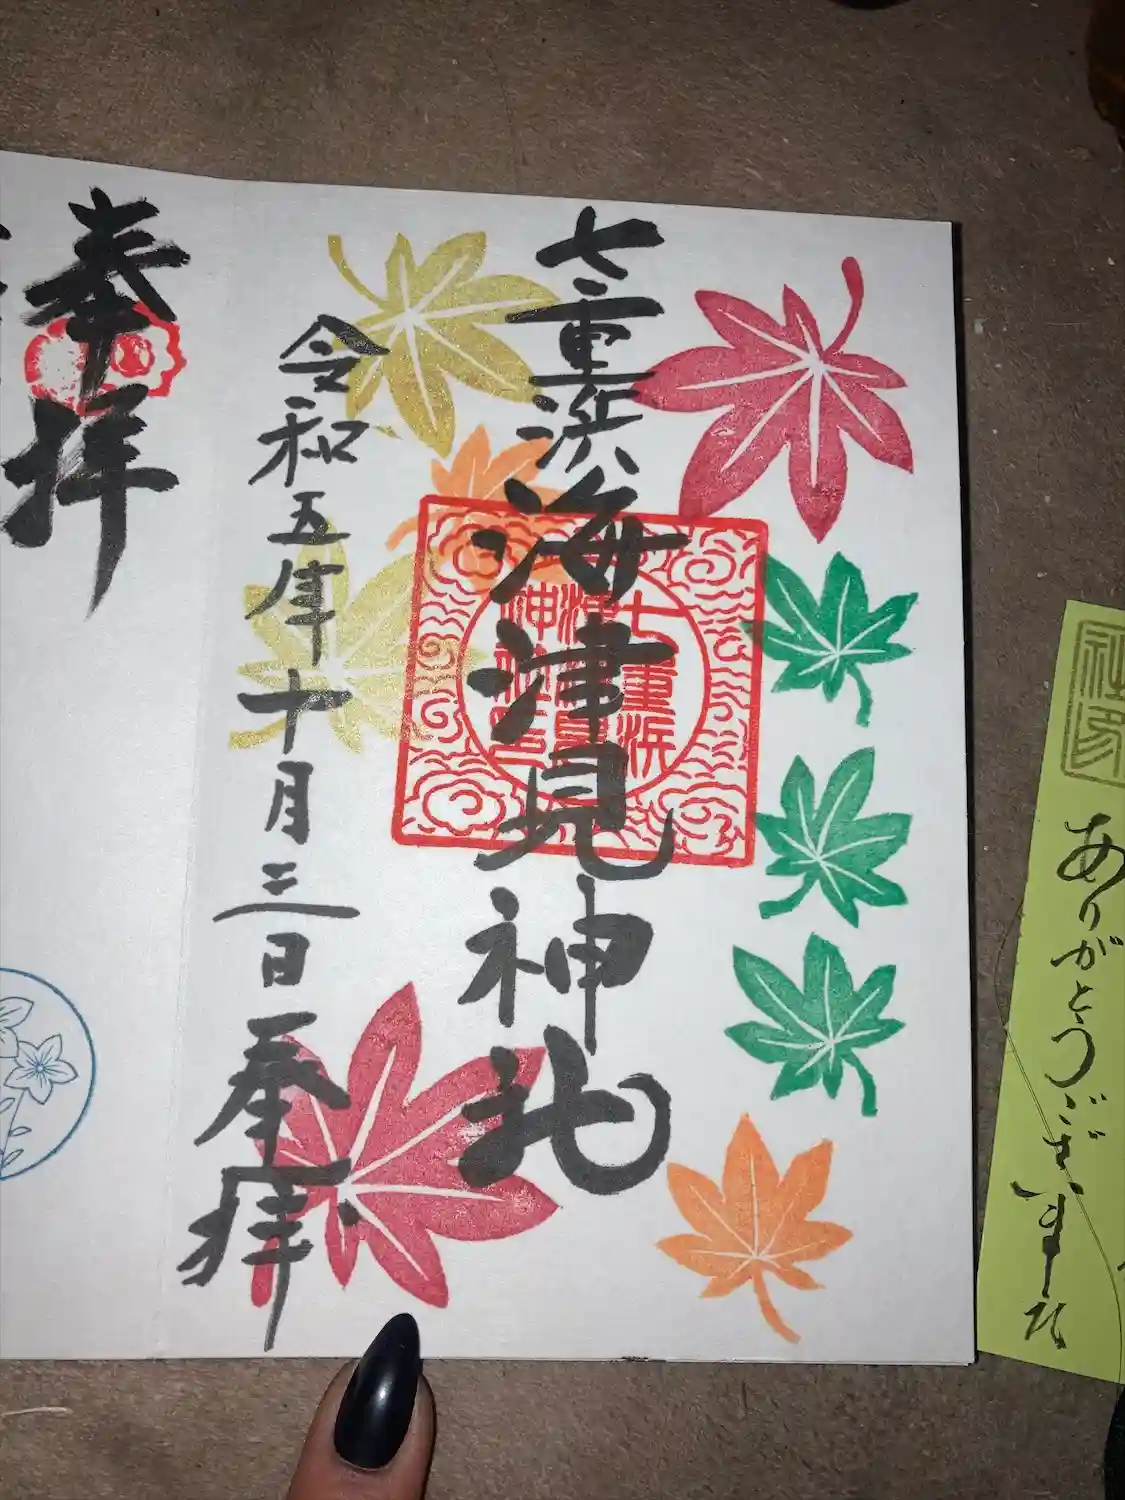 七重浜海津見神社
七重浜
海津見
神社之印
令和五年十月三日奉拝
奉拝
ありがとうございます